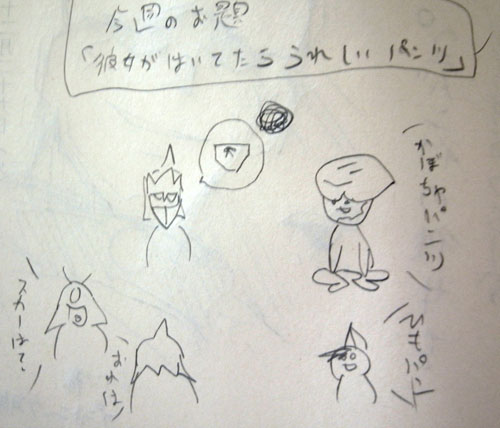 今回のお題
「彼女がはいてたらうれしいパンツ」
かぼちゃパンツ
ひもパント
スカーはて.
おれは